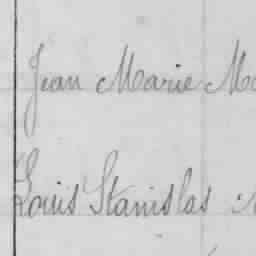 Jean Marie
Louis Stanislas